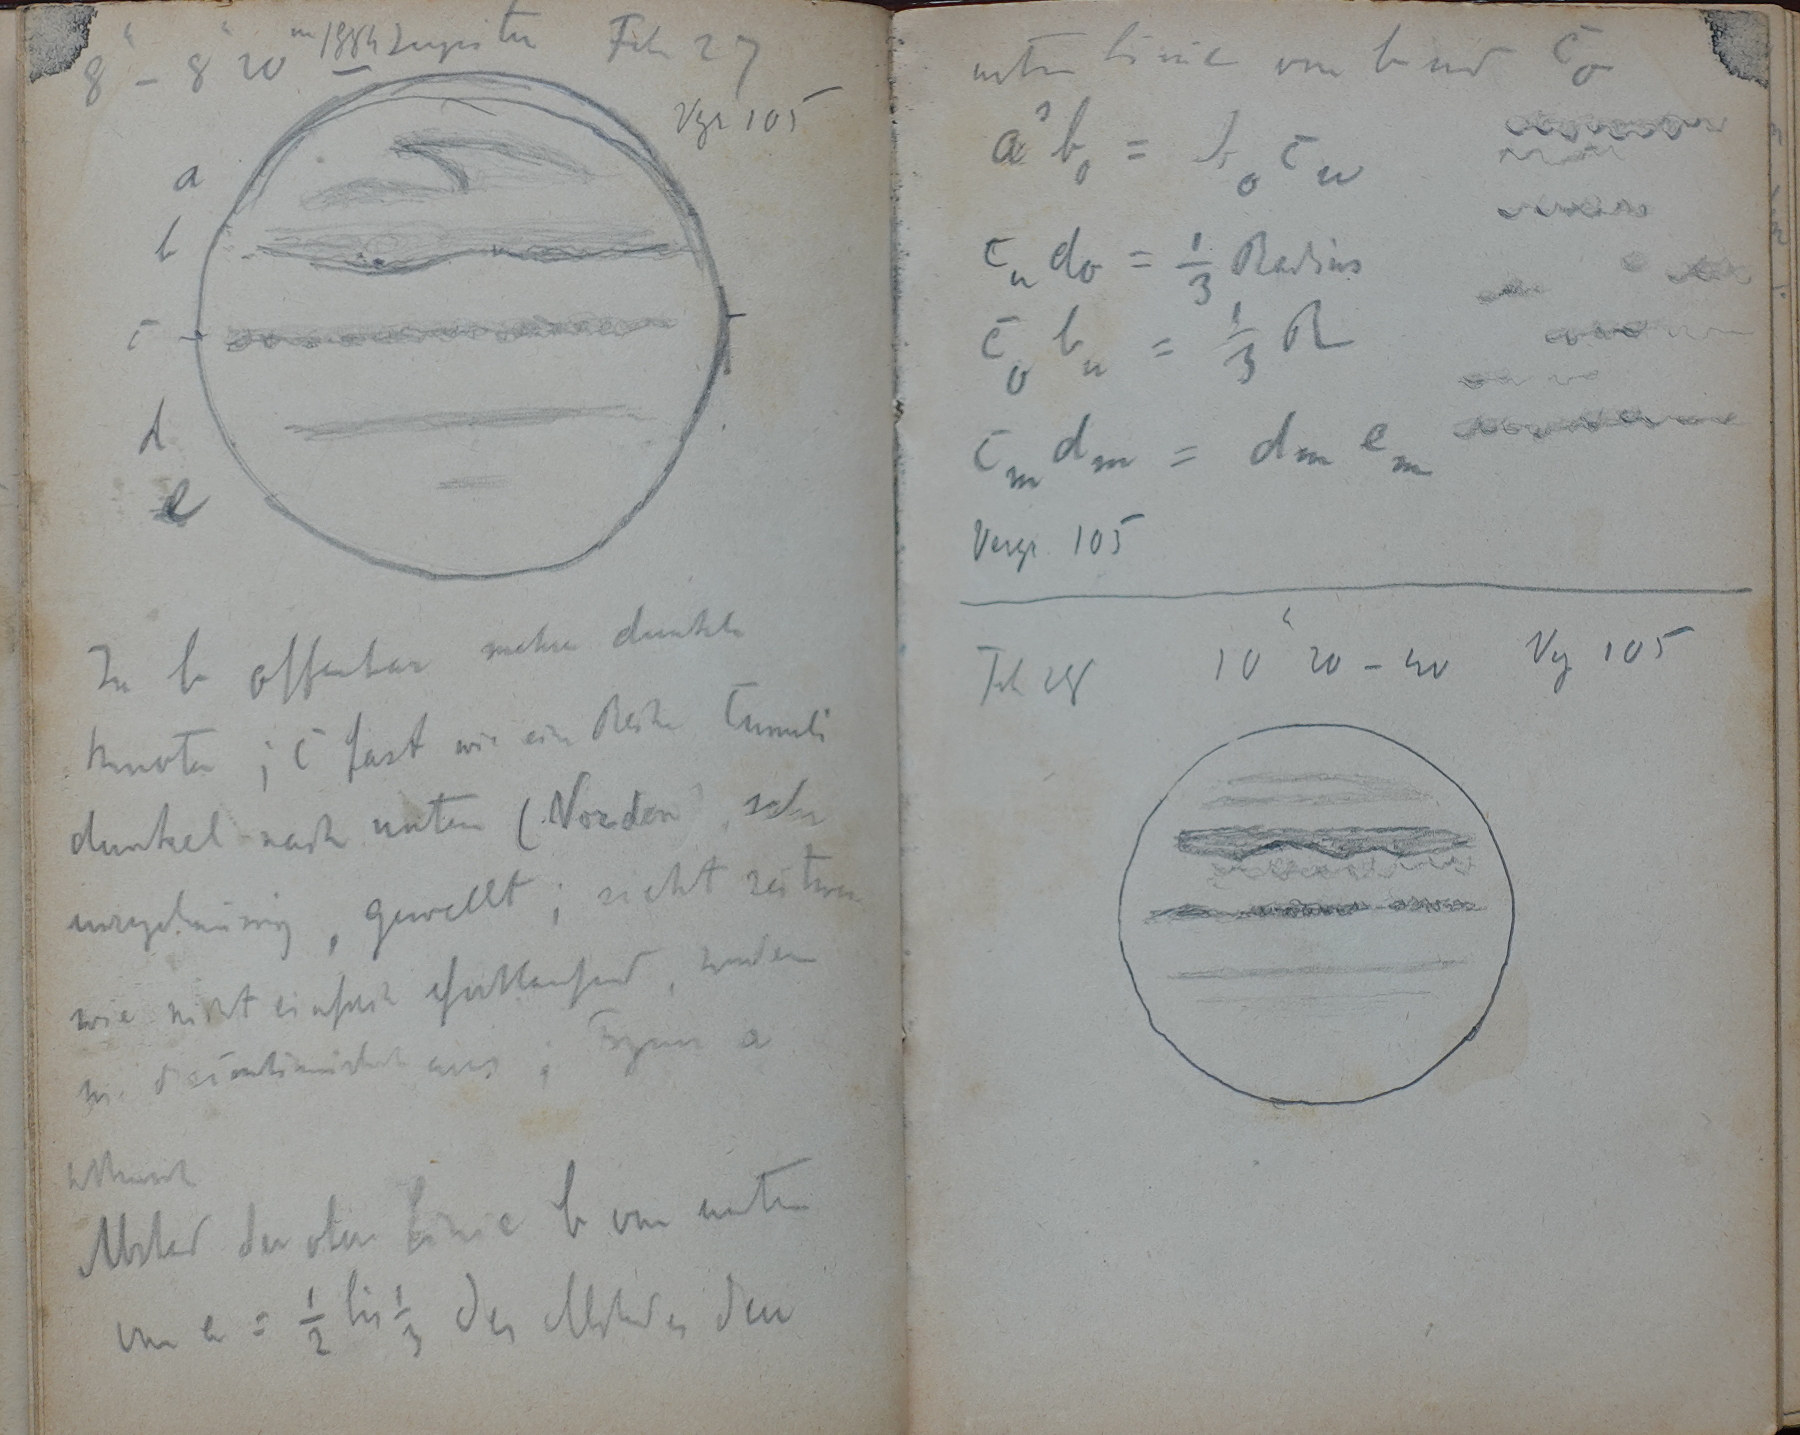 8h – 8h 20m 1884 Jupiter Feb 27
Vgr 105
a
b
c
d
e
In b offenbar mehre dunkle
Knoten ; c fast wie eine Reihe Cumuli
dunkel nach unten (Norden), sehr
unregelmässig, gewellt ; sieht
wie nicht einfach fortlaufend, sondern
aus ; Figur a
Abstand der oberen Linie b von unten
von a = 1/2 bis 1/3 des Abstandes der
unteren Linie von b und c o
a b o = b o c u
c u d o = 1/3 Radius
c o b u = 1/3 R
c m d m = d m e m
Vergr. 105
Feb 28 10h 20 – 40 Vg 105